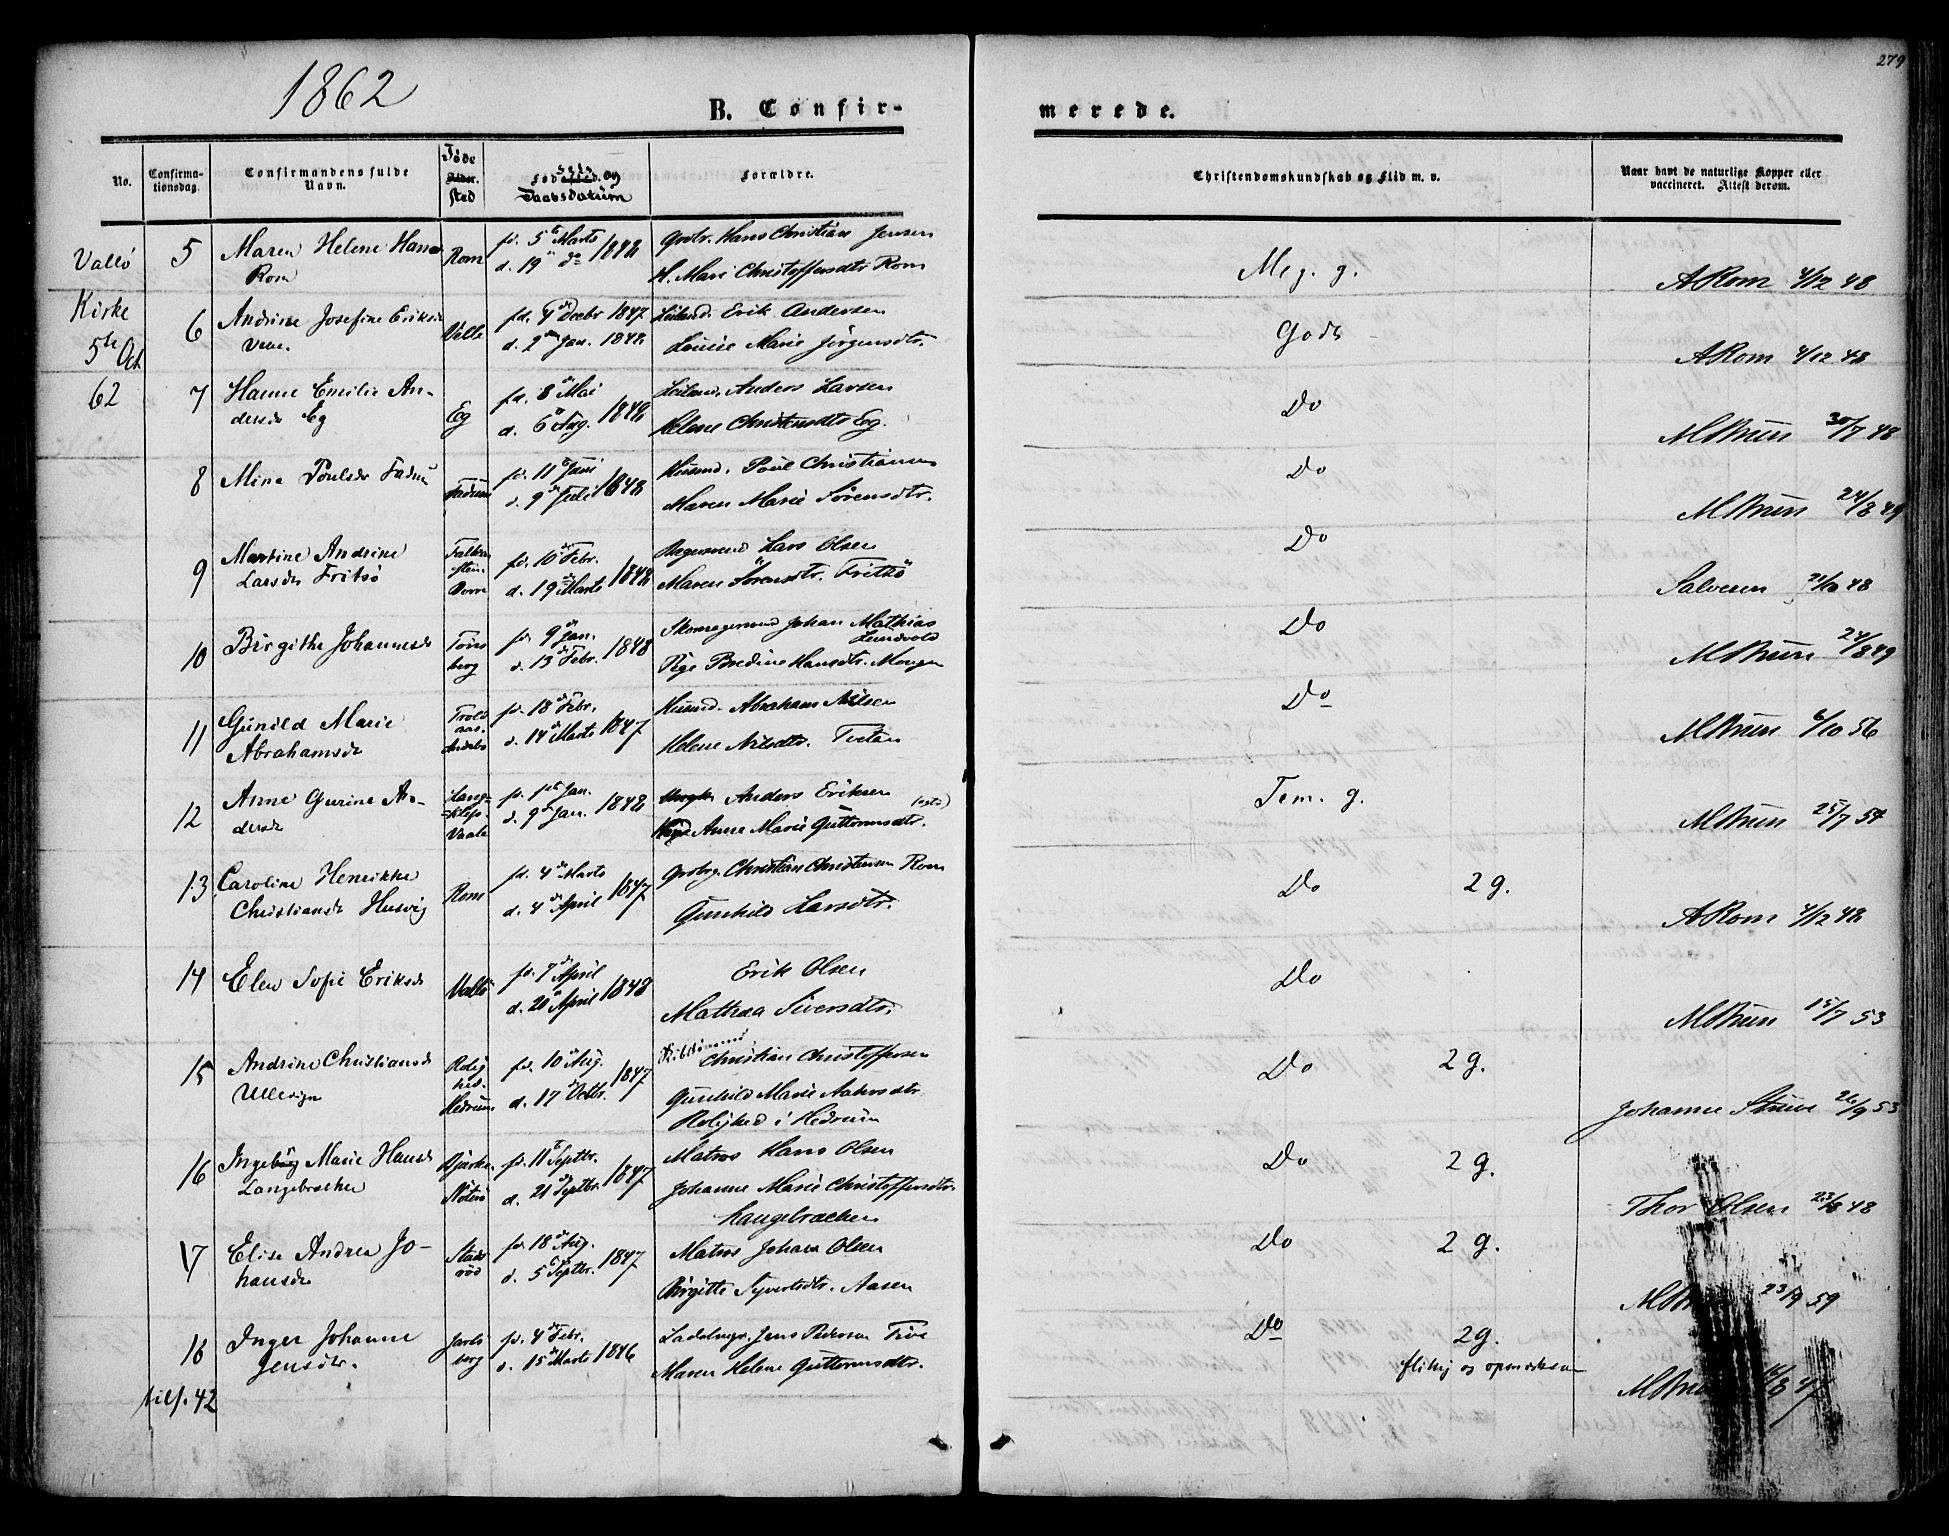 279
1862
B. Confir-
merede.
No.
Confirma-
tionsdag.
Confirmandens fulde
Navn.
Föde
sted
Föd og
Daabsdatum
Forældre.
Christendomskundskab og Flid m. v.
Naar havt de naturlige Kopper eller
vaccineret. Attest derom.
Vallö
Kirke
5te Oct
62
5 Maren Helene Hans
Rom
Rom
fd. 5te Marts
d. 19 do 1848
Grbr. Hans Christian Jensen
H. Mari Christoffersdtr Rom
Meg. g.
ARom 4/12 48
6 Andrine Josefine Eriksd
fd. 4de Decbr 1847
d. 2den Jan. 1848
Leilænd. Erik Andersen
Louise Marie Jörgensdtr.
Godt
ARom 4/12 48
7 Hanne Emilie An-
dersdr Eg
Eg
fd. 8 Mai
d. 6 Aug. 1848
Leilænd. Anders Larsen
Helene Christensdtr Eg.
Do
MBruun 30/7 48
8 Mina Poulsdr Fadum
Fadum
fd. 11te Juni
d. 9de Juli 1848
Huusmd. Poul Christiansen
Maren Marie Sörensdtr.
Do
MBruun 24/8 49
9 Martine Andrine
Larsdr Fritsö
fd. 10de Febr.
d. 19de Marts 1848
Lars Olsen
Maren Sörensdtr. Fritsö
Do
Salvesen 48
10 Birgithe Johannesdr
Töns
berg
fd. 9de Jan.
d. 13de Febr. 1848
Skomagersvend Johan Mathias
Lundvold
Pige Bredine Hansdtr.
Do
MBruun 24/8 49
11 Gunild Marie
Abrahamsdr
fd. 18de Febr.
d. 14de Marts 1847
Huusmd. Abraham Nilsen
Helene Nilsdtr. Tveten
Do
MBruun 6/10 56
12 Anne Gurine An-
dersdr
Vaale
Jan.
d. 9de Jan. 1848
Anders Eriksen
Pige Anne Marie Guttormsdtr.
Tem. g.
MBruun 25/7 54
13 Caroline Henrikke
Christiansdr Husvig
Rom
fd. 4de Marts
d. 4de April 1847
Christian Christiansen Rom
Gunhild Larsdtr.
Do 2 g.
ARom 4/12 48
14 Elen Sofie Eriksdr
Vallö
fd. 7de April
d. April 1848
Erik Olsen
Mathea Siversdtr.
Do
MBruun 15/7 53
15 Andrine Christiansdr
Rolig
hed.
Hedrum
fd. 10 Aug.
d. 17de Octbr. 1847
Christian Christoffersen
Gunhild Marie Andersdtr
Rolighed i Hedrum
Do 2 g.
Johanne Struve 26/9 53
16 Ingeborg Marie Hansdr
Langebrækken
Bjerke
Nöterö
fd. 11te Septbr.
d. Septbr. 1847
Matros Hans Olsen
Johanne Marie Christoffersdtr.
Langebrækken
Do 2 g.
Thor Olsen 48
17 Elise Andrea Jo-
hansdr
fd. 18de Aug.
d. 5te Septbr. 1847
Matros Johan Olsen
Birgitte Syvertsdtr. Aasen
Do 2 g.
23/9 59
18 Inger Johanne
Jensdtr.
Jarls
berg
fd. 4de Febr.
d. 15de Marts 1846
Jens Pedersen
Maren Helene Guttormsdtr.
Do 2 g.
flittig og opmærksom
MBruun
tilf. 42